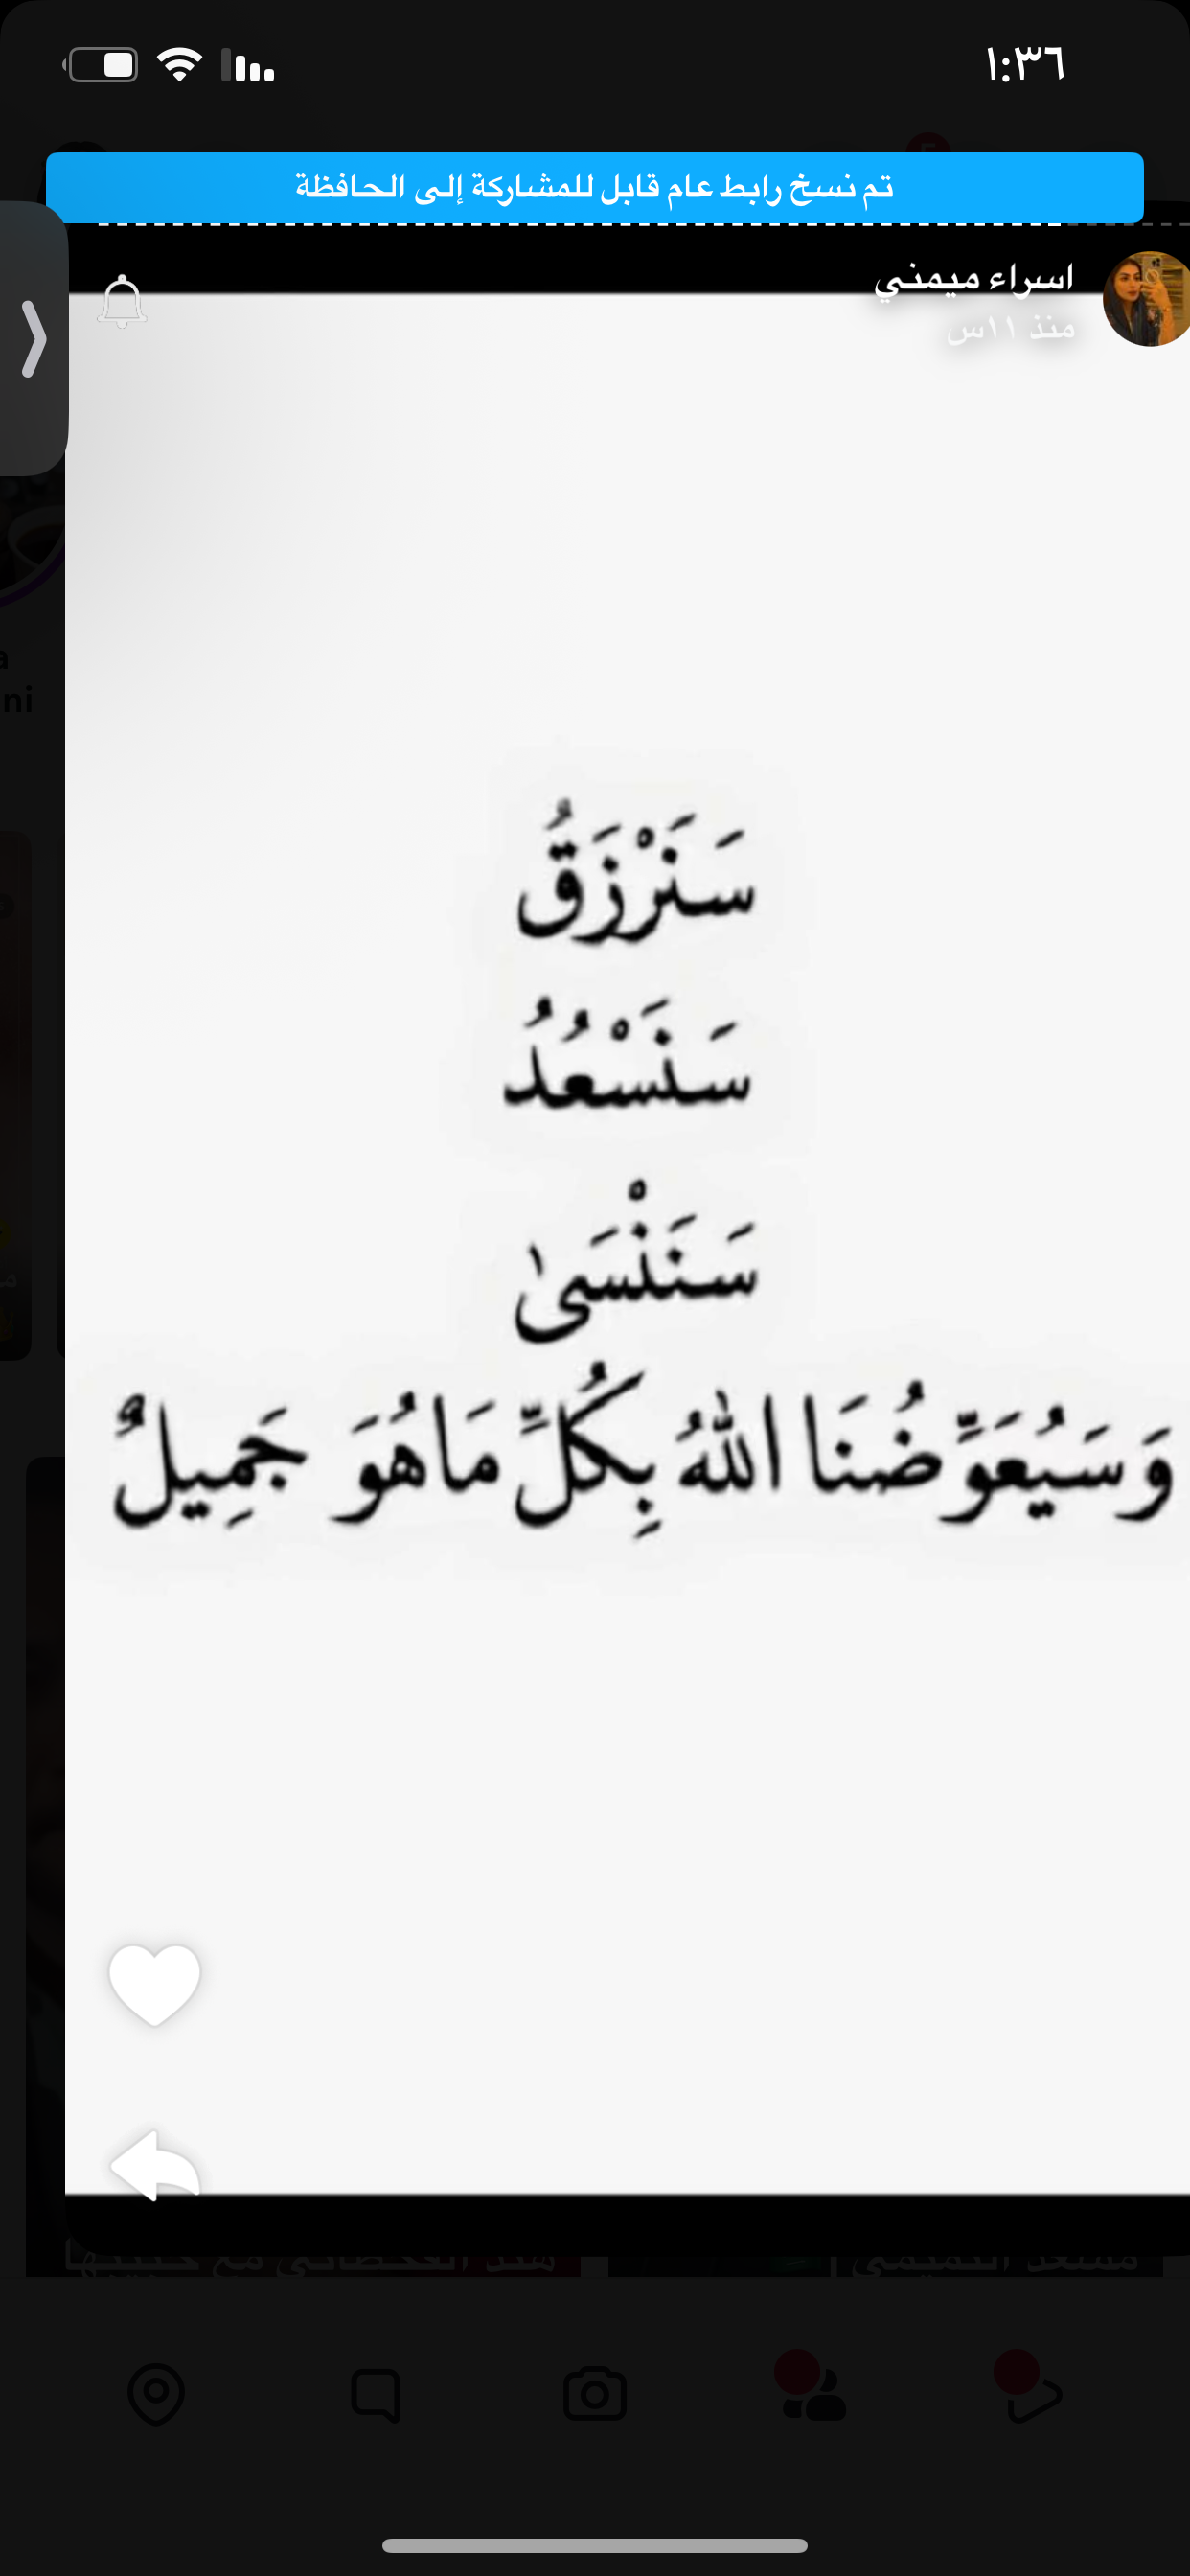 ١:٣٦
تم نسخ رابط عام قابل للمشاركة إلى الحافظة
اسراء ميمني
منذ ١١س
ni
سَنَرْزَقُ
سَنَسْعُدُ
سَنَنْسَىٰ
وَسَيُعَوِّضُنَا اللهُ بِكُلِّ مَاهُوَ جَمِيلٌ